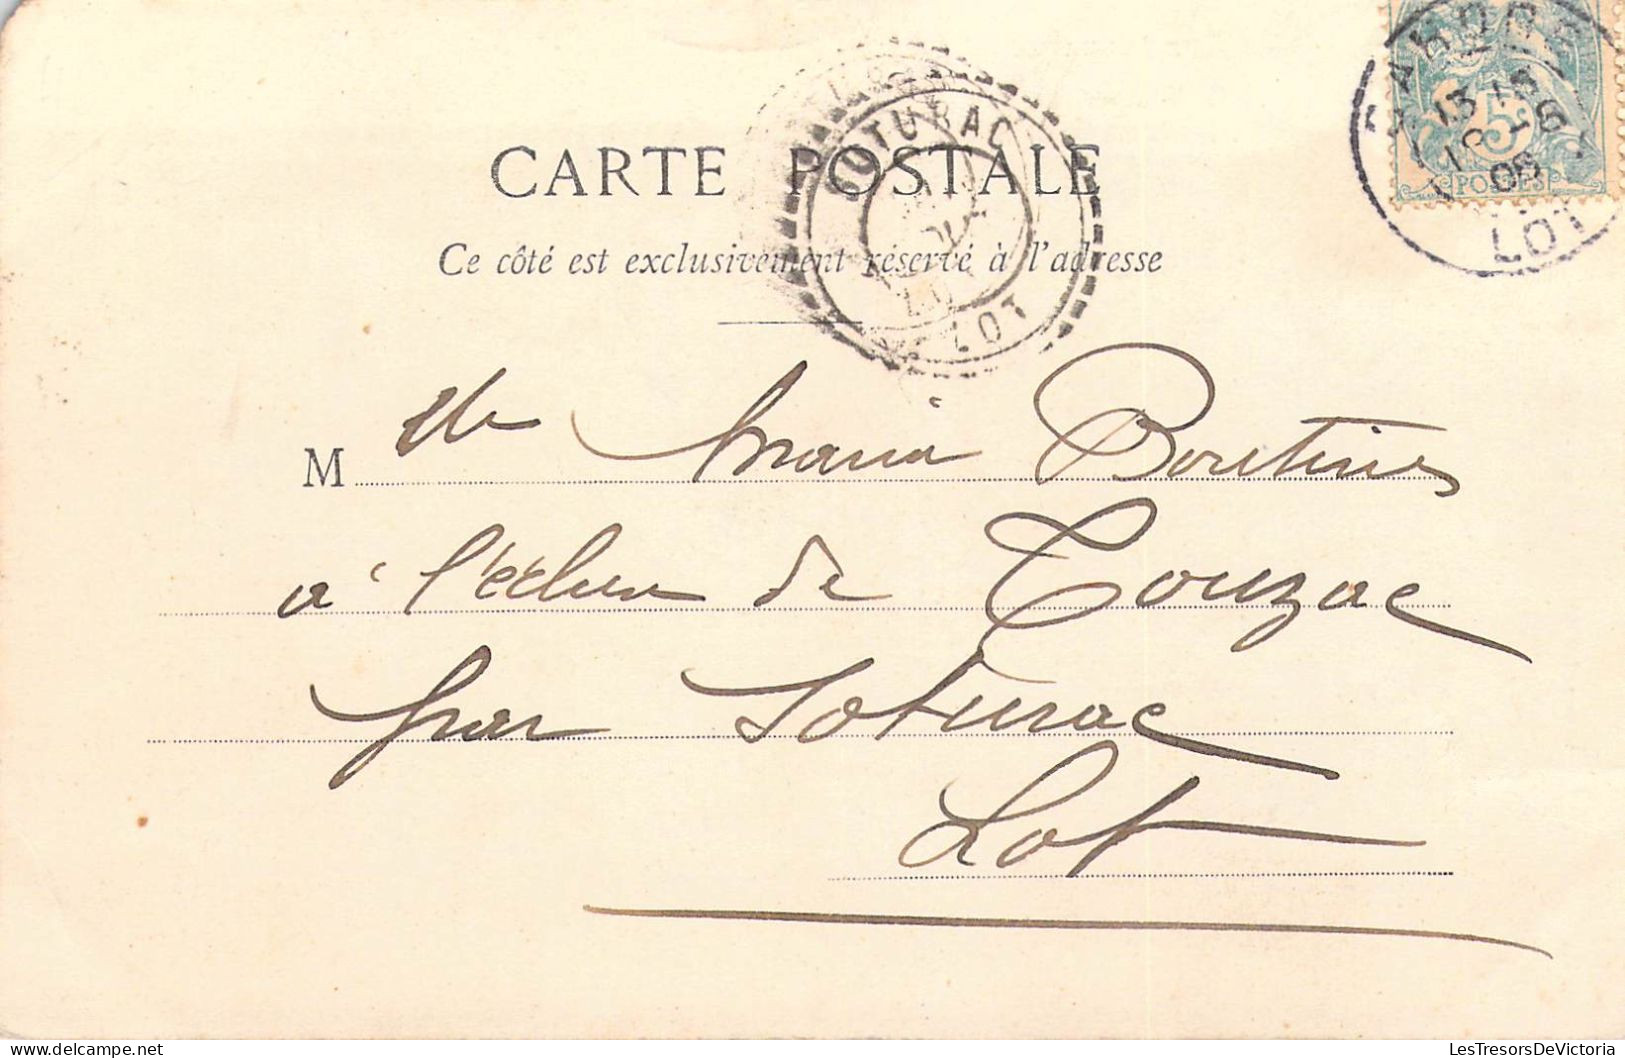 CARTE POSTALE
Ce côté est exclusivement réservé à l'adresse
SOTURAC
LOT
CAHORS
13 15
16 - 6
06
LOT
5
POSTES
M lle Maria Boutines
à l'écluse de Touzac
par Soturac
Lot
LesTresorsDeVictoria